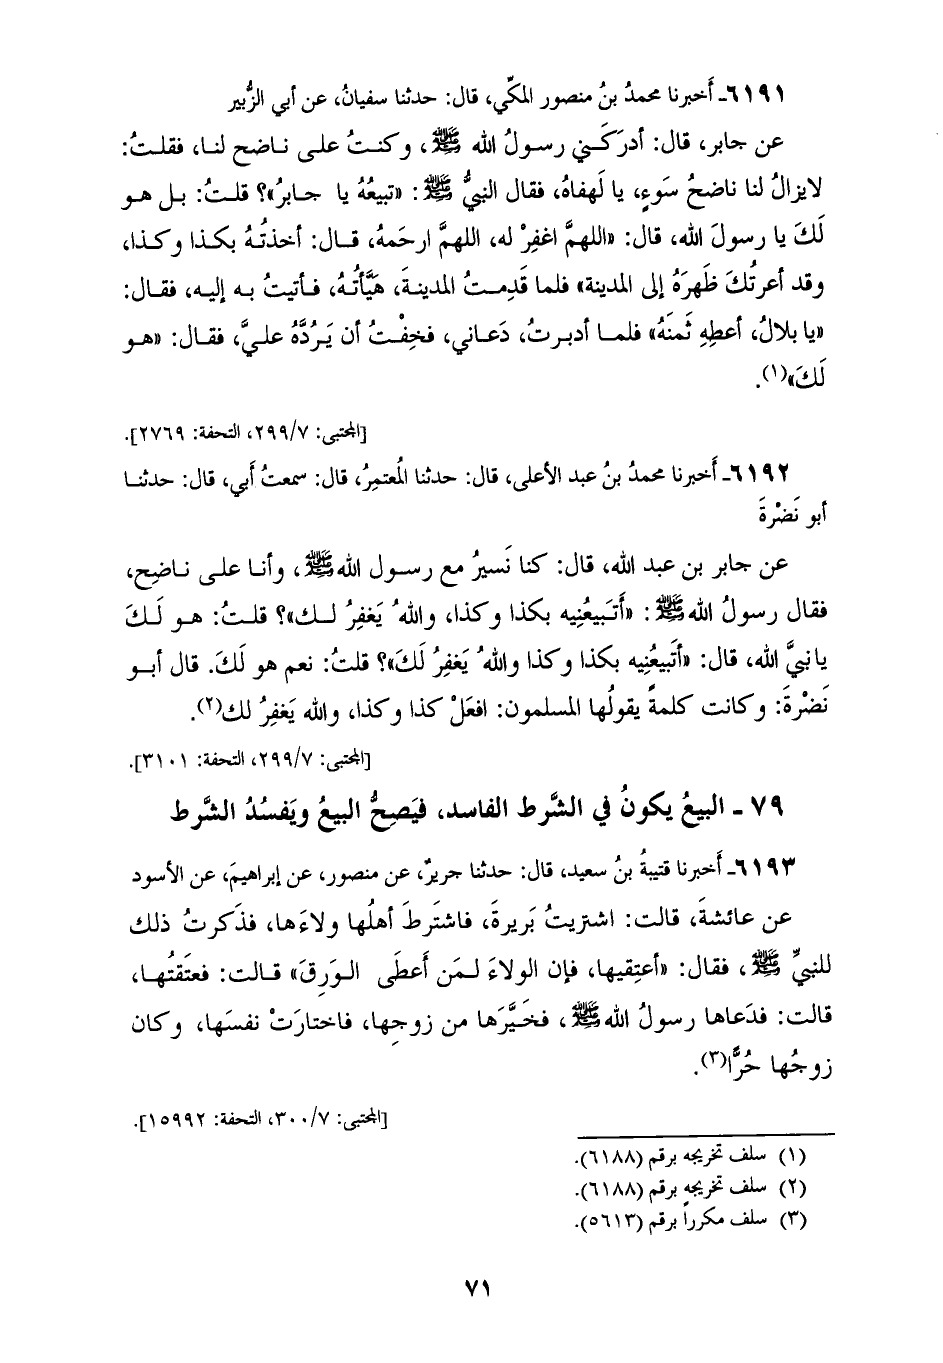 ٦١٩١ـ أَخبرنا محمدُ بنُ منصور المكّي، قال: حدثنا سفيانُ، عن أبي الزُّبير
عن جابر، قال: أدرَكَني رسولُ الله ﷺ، وكنتُ على ناضح لنا، فقلتُ:
لايزالُ لنا ناضحُ سَوءٍ، يا لَهفاهُ، فقال النبيُّ ﷺ: «تبيعُهُ يا جابرُ»؟ قلتُ: بل هو
لَكَ يا رسولَ الله، قال: «اللهمَّ اغفِرْ له، اللهمَّ ارحَمهُ، قال: أخذتُهُ بكذا وكذا،
وقد أعرتُكَ ظَهرَهُ إلى المدينة» فلما قَدِمتُ المدينةَ، هَيَّأتُهُ، فأتيتُ به إليه، فقال:
«يا بلالُ، أعطِهِ ثَمنَهُ» فلما أدبرتُ، دَعاني، فخِفْتُ أن يَرُدَّهُ عليَّ، فقال: «هو
لَكَ»(١).
[المجتبى: ٢٩٩/٧، التحفة: ٢٧٦٩].
٦١٩٢ـ أَخبرنا محمدُ بنُ عبد الأعلى، قال: حدثنا المُعتمِرُ، قال: سمعتُ أَبي، قال: حدثنا
أبو نَضْرةَ
عن جابر بن عبد الله، قال: كنا نَسيرُ مع رسول الله ﷺ، وأنا على ناضِح،
فقال رسولُ الله ﷺ: «أَتَبيعُنِيه بكذا وكذا، واللهُ يَغفِرُ لك»؟ قلتُ: هو لَكَ
يا نبيَّ الله، قال: «أتَبيعُنِيه بكذا وكذا واللهُ يَغفِرُ لَكَ»؟ قلتُ: نعم هو لَكَ. قال أبو
نَضْرةَ: وكانت كلمةً يقولُها المسلمون: افعَلْ كذا وكذا، والله يَغفِرُ لك(٢).
[المجتبى: ٢٩٩/٧، التحفة: ٣١٠١].
٧٩ ـ البيعُ يكونُ في الشَّرط الفاسد، فيَصِحُّ البيعُ ويَفسُدُ الشَّرط
٦١٩٣ـ أَخبرنا قتيبةُ بنُ سعيد، قال: حدثنا جريرٌ، عن منصور، عن إبراهيمَ، عن الأسود
عن عائشةَ، قالت: اشتريتُ بَريرةَ، فاشتَرطَ أهلُها ولاءَها، فذَكرتُ ذلك
للنبيِّ ﷺ، فقال: «أعتِقيها، فإن الولاءَ لمَن أَعطَى الوَرِقَ» قالت: فعتَقتُها،
قالت: فدَعاها رسولُ الله ﷺ، فخَيَّرَها من زوجِها، فاختارَتْ نفسَها، وكان
زوجُها حُرًّا(٣).
[المجتبى: ٣٠٠/٧، التحفة: ١٥٩٩٢].
(١) سلف تخريجه برقم (٦١٨٨).
(٢) سلف تخريجه برقم (٦١٨٨).
(٣) سلف مكرراً برقم (٥٦١٣).
٧١